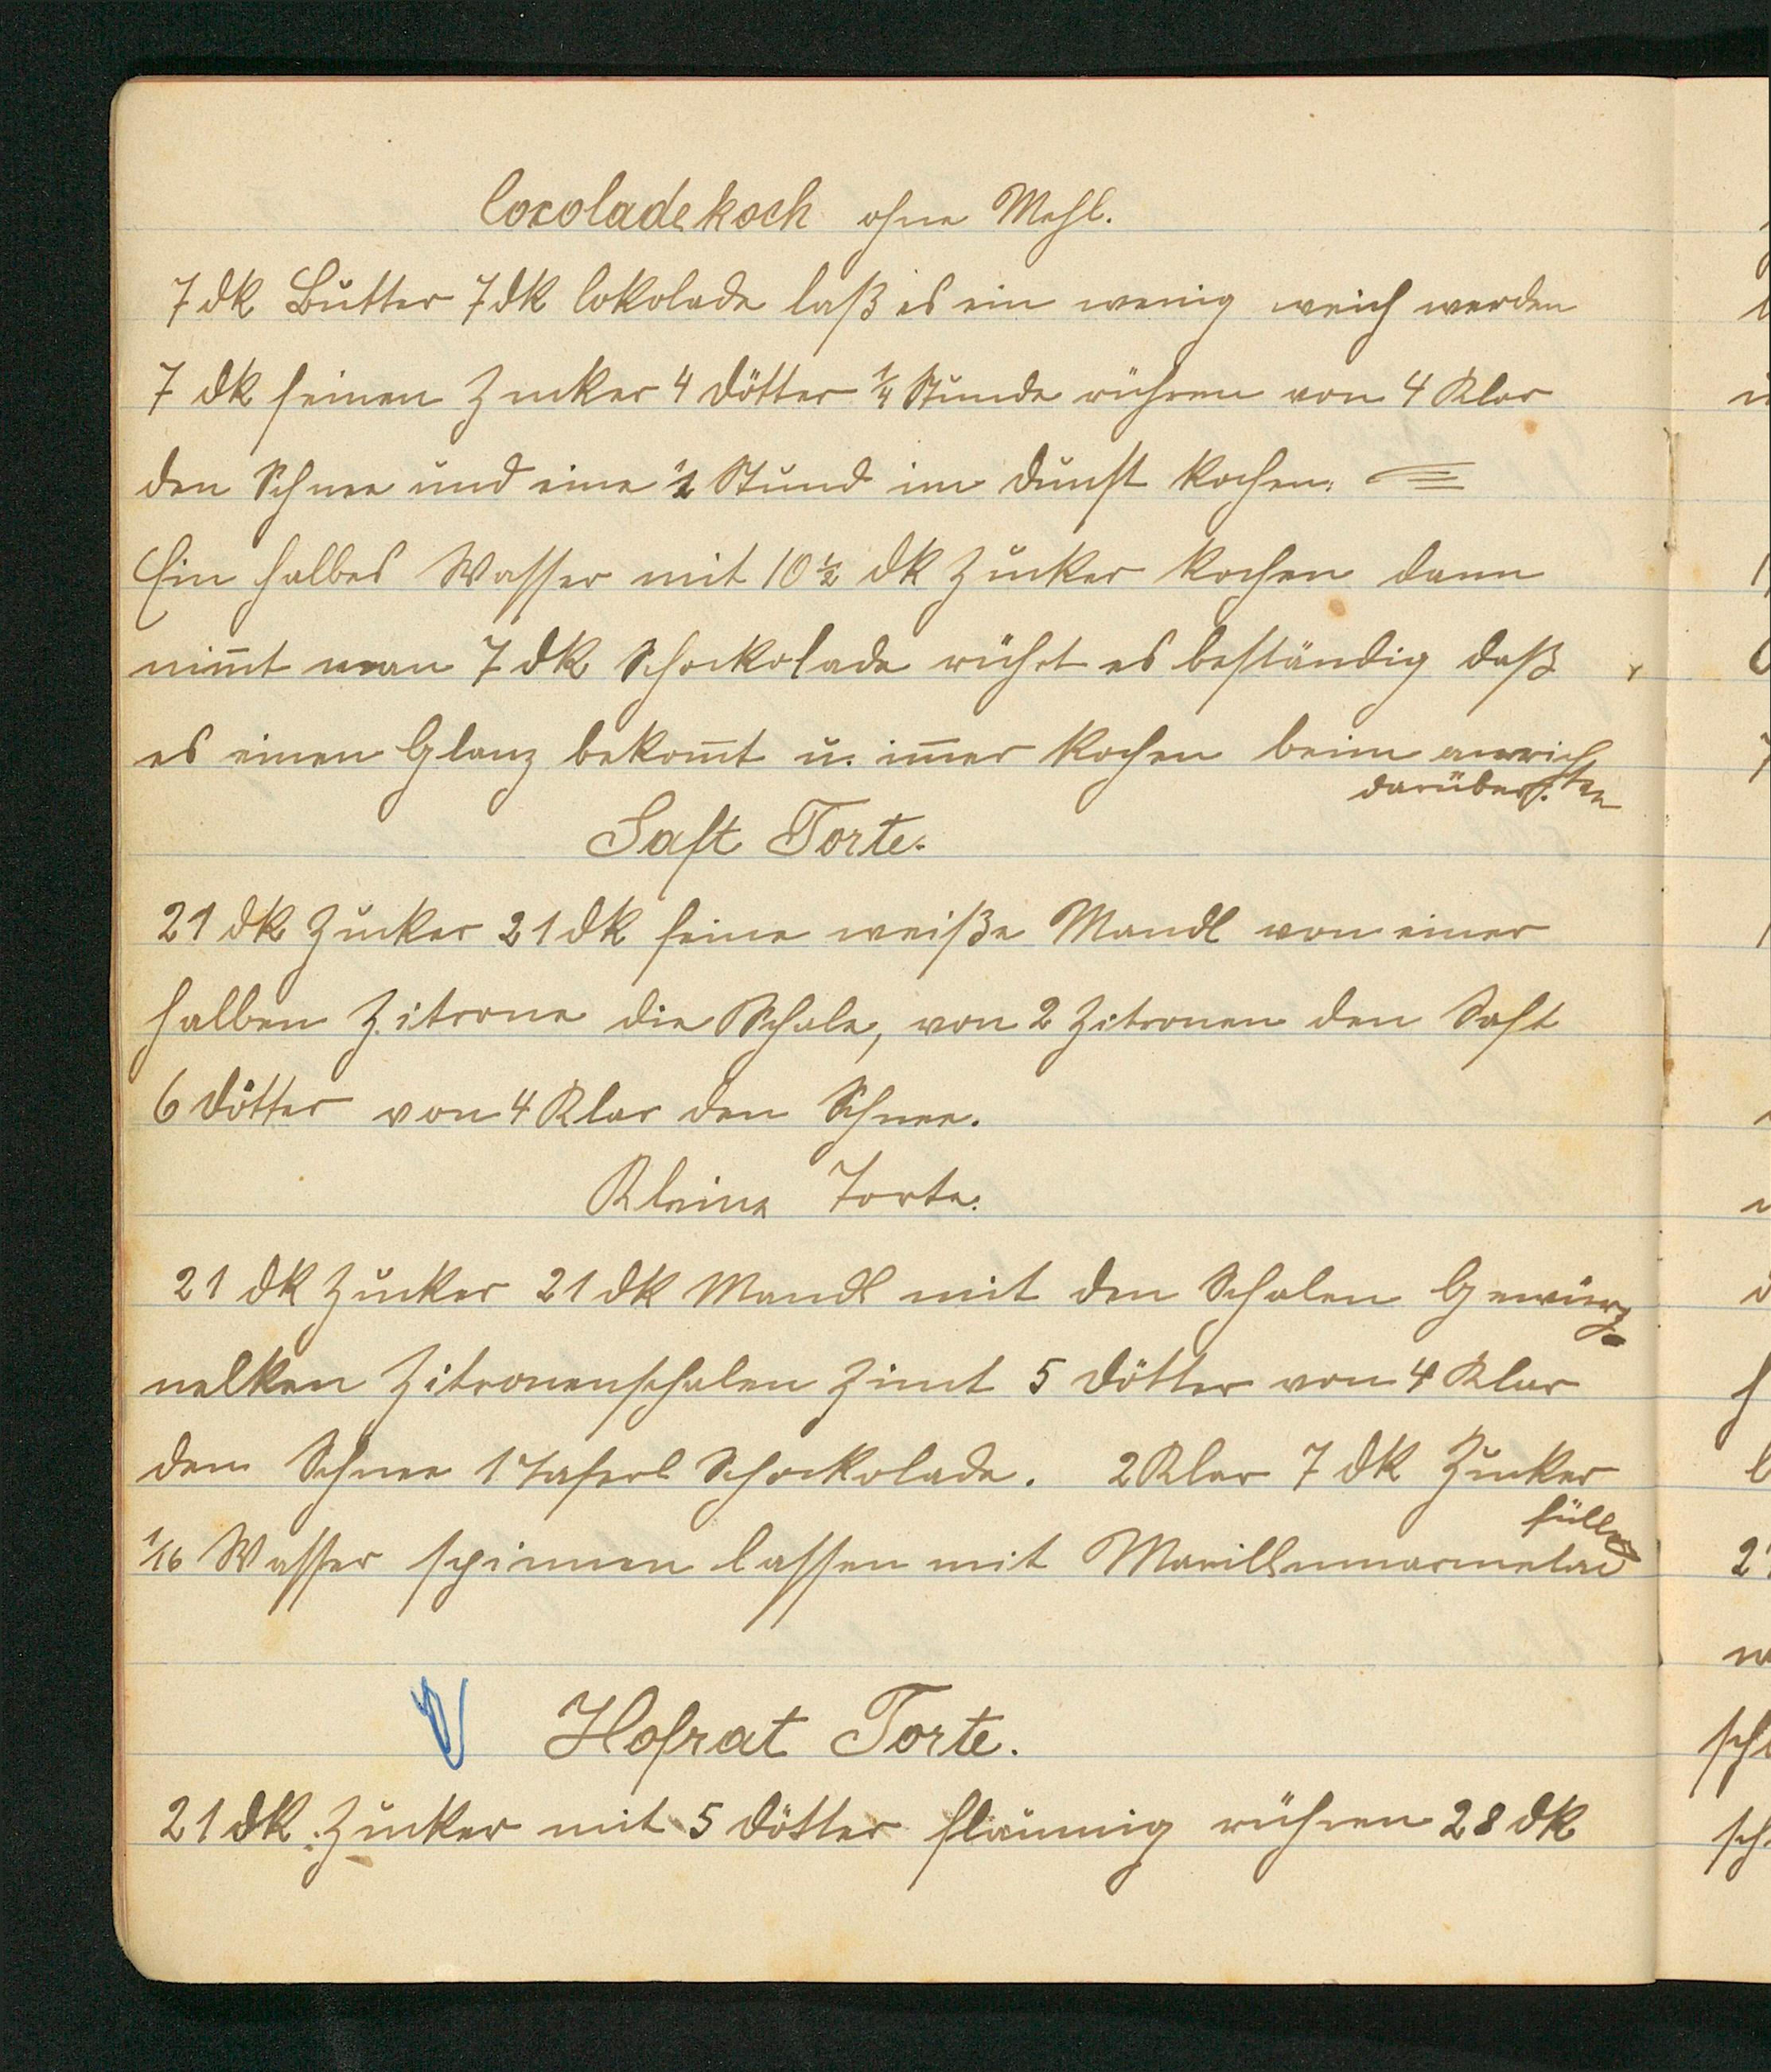 Cocoladekoch ohne Mehl.
7 dk Butter 7 dk Cokolade laß es ein wenig weich werden
7 dk feinen Zucker 4 Dötter 1/4 Stunde rühren von 4 Klar
den Schnee und eine 1/2 Stund im Dunst kochen.
Ein halbes Wasser mit 10 1/2 dk Zucker kochen dann
nim̄t man 7 dk Schockolade rührt es beständig daß
es einen Glanz bekom̄t u. im̄er kochen beim anrich
darüber. ten
Saft Torte.
21 dk Zucker 21 dk feine weiße Mandl von einer
halben Zitrone die Schale, von 2 Zitronen den Saft
6 Dötter von 4 Klar den Schnee.
Kleine Torte.
21 dk Zucker 21 dk Mandl mit den Schalen Gewürz-
nelken Zitronenschalen Zimt 5 Dötter von 4 Klar
den Schnee 1 Taferl Schockolade. 2 Klar 7 dk Zucker
füllen
1/16 Wasser spinnen lassen mit Marillenmarmelad
Hofrat Torte.
21 dk Zucker mit 5 Dötter flaumig rühren 28 dk